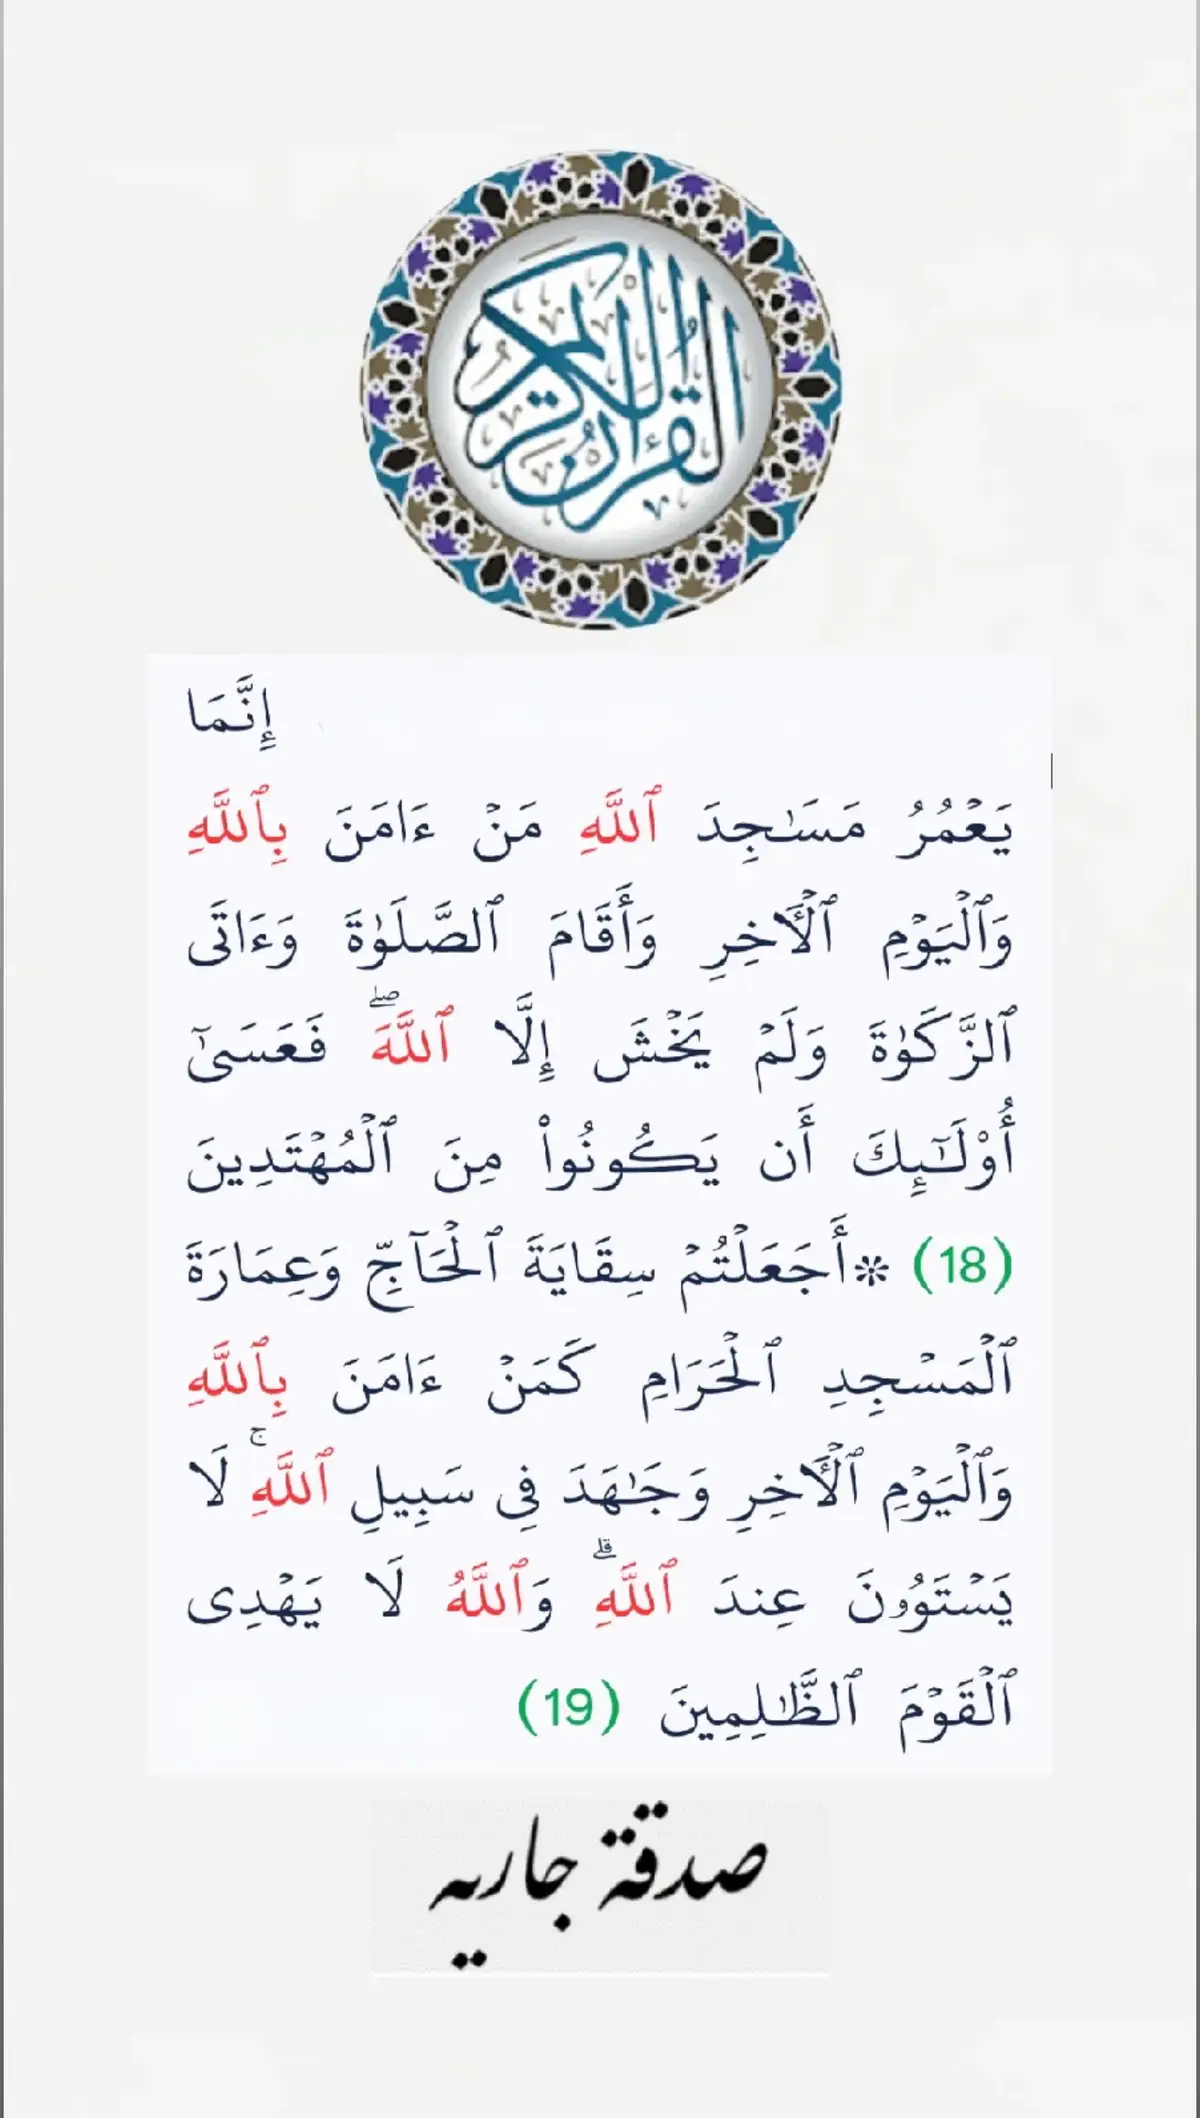 القرآن الكريم
إِنَّمَا
يَعۡمُرُ مَسَٰجِدَ ٱللَّهِ مَنۡ ءَامَنَ بِٱللَّهِ
وَٱلۡيَوۡمِ ٱلۡأٓخِرِ وَأَقَامَ ٱلصَّلَوٰةَ وَءَاتَى
ٱلزَّكَوٰةَ وَلَمۡ يَخۡشَ إِلَّا ٱللَّهَۖ فَعَسَىٰٓ
أُوْلَٰٓئِكَ أَن يَكُونُواْ مِنَ ٱلۡمُهۡتَدِينَ
(18) ۞أَجَعَلۡتُمۡ سِقَايَةَ ٱلۡحَآجِّ وَعِمَارَةَ
ٱلۡمَسۡجِدِ ٱلۡحَرَامِ كَمَنۡ ءَامَنَ بِٱللَّهِ
وَٱلۡيَوۡمِ ٱلۡأٓخِرِ وَجَٰهَدَ فِي سَبِيلِ ٱللَّهِۚ لَا
يَسۡتَوُۥنَ عِندَ ٱللَّهِۗ وَٱللَّهُ لَا يَهۡدِي
ٱلۡقَوۡمَ ٱلظَّٰلِمِينَ (19)
صدقة جاريه